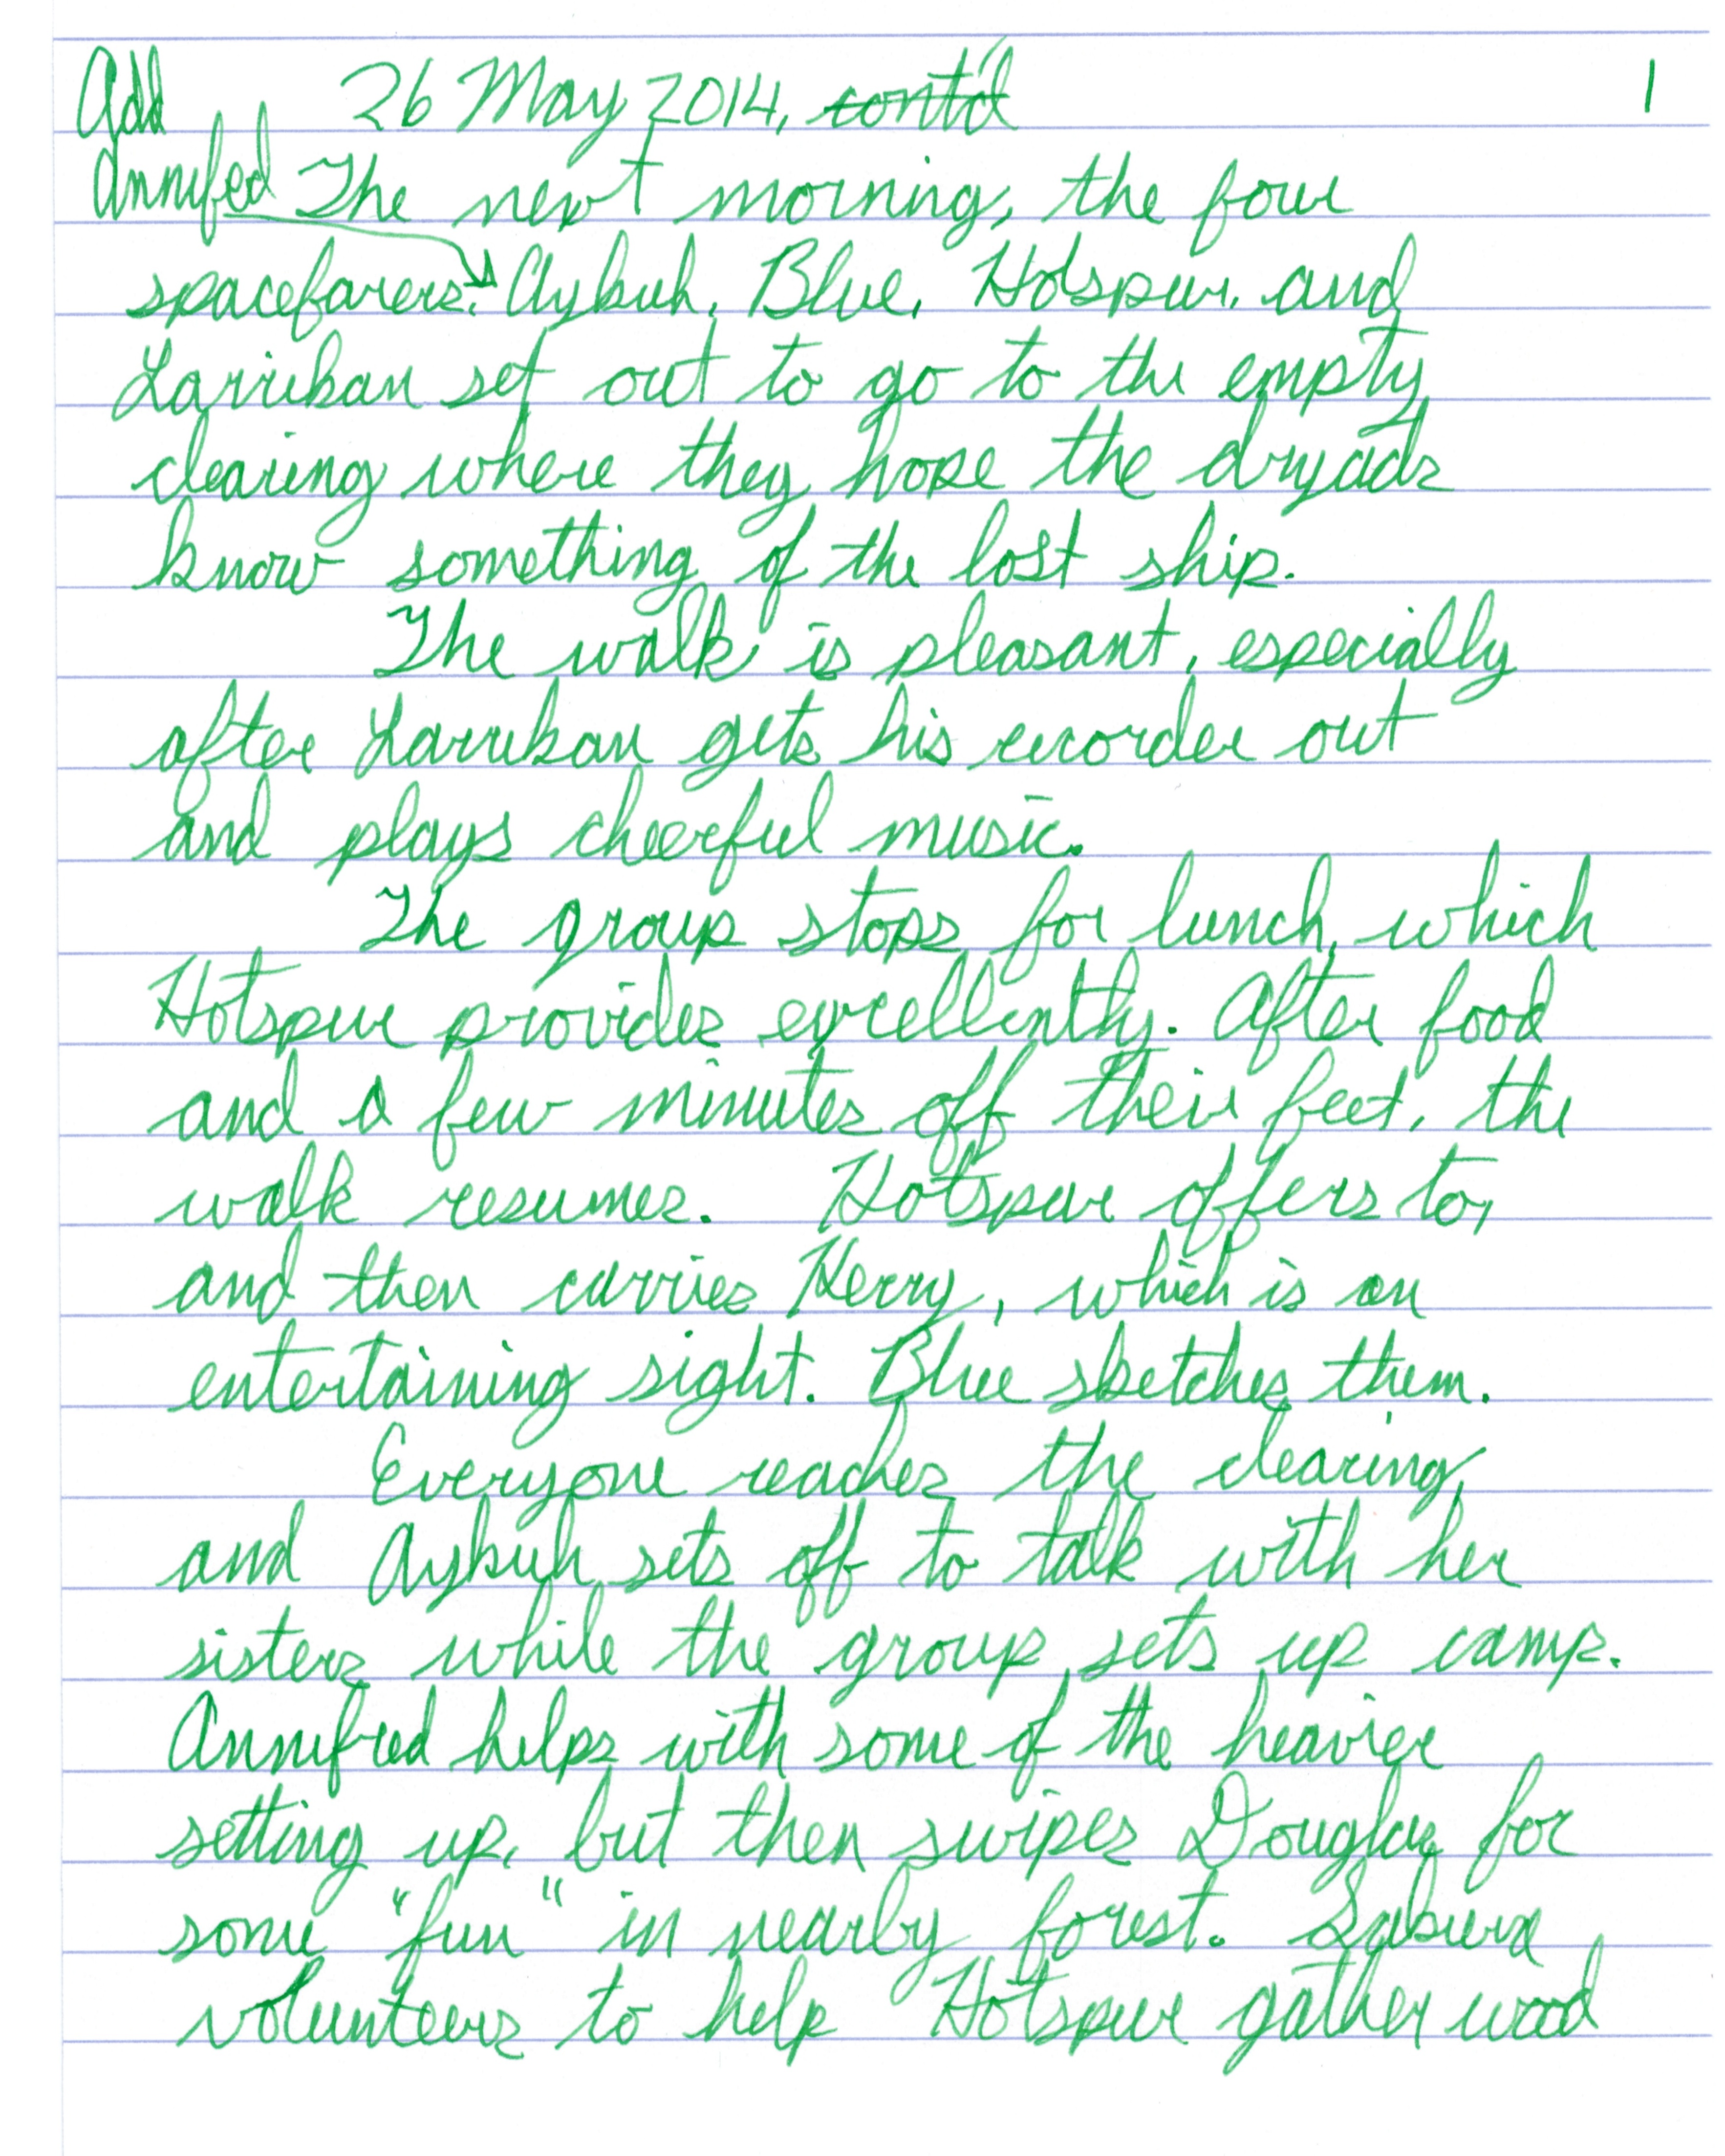 Add 26 May 2014, cont'd 1
Annifred The next morning, the four
spacefarers, Aykuh, Blue, Hotspur, and
Larrikan set out to go to the empty
clearing where they hope the dryads
know something of the lost ship.
The walk is pleasant, especially
after Larrikan gets his recorder out
and plays cheerful music.
The group stops for lunch, which
Hotspur provides excellently. After food
and a few minutes off their feet, the
walk resumes. Hotspur offers to,
and then carries Kerry, which is an
entertaining sight. Blue sketches them.
Everyone reaches the clearing,
and Aykuh sets off to talk with her
sisters while the group sets up camp.
Annifred helps with some of the heavier
setting up, but then swipes Douglas for
some "fun" in nearby forest. Sakura
volunteers to help Hotspur gather wood